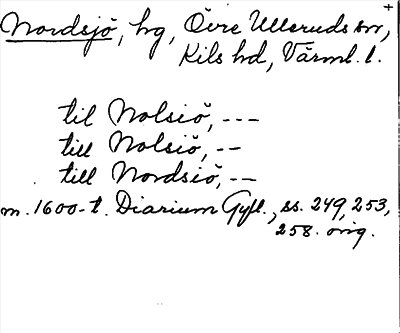 Nordsjö, hg, Övre Ulleruds sn,
Kils hd, Värml. l.
till Nolsiö, ---
till Nolsiö, --
till Nordsiö, --
m. 1600-t. Diarium Gyll., ss. 249, 253,
258. orig.